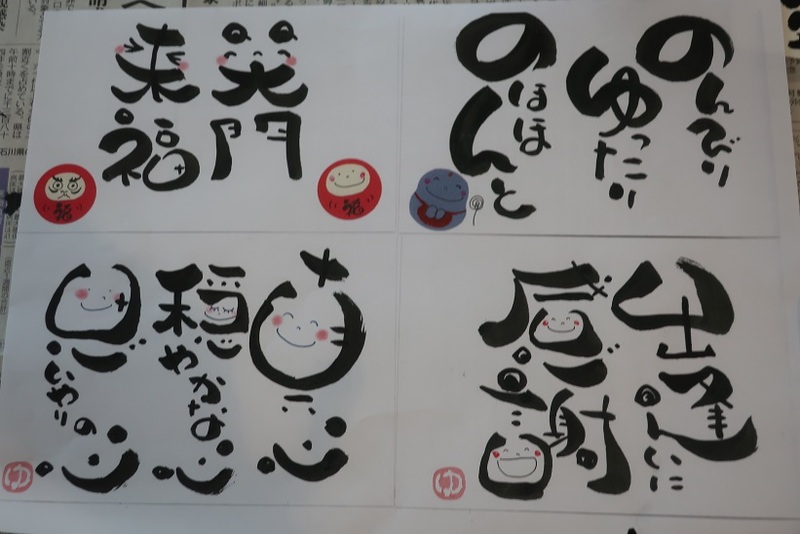 笑門
来福
福
福
のんびり
ゆったり
のほほんと
心
穏やかな心
思いやりの心
ゆ
出逢いに
感謝
ゆ